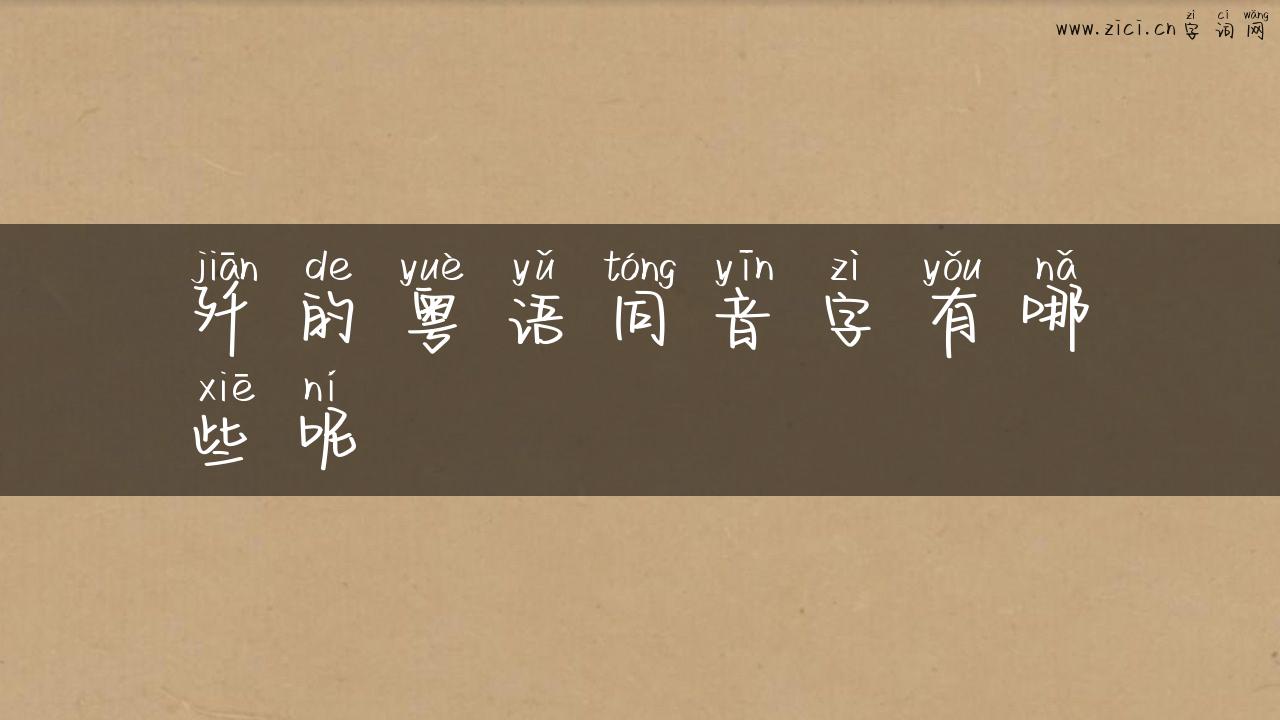 zì cí wǎng
www.zici.cn 字词网
jiān de yuè yǔ tóng yīn zì yǒu nǎ
歼的粤语同音字有哪
xiē ní
些呢